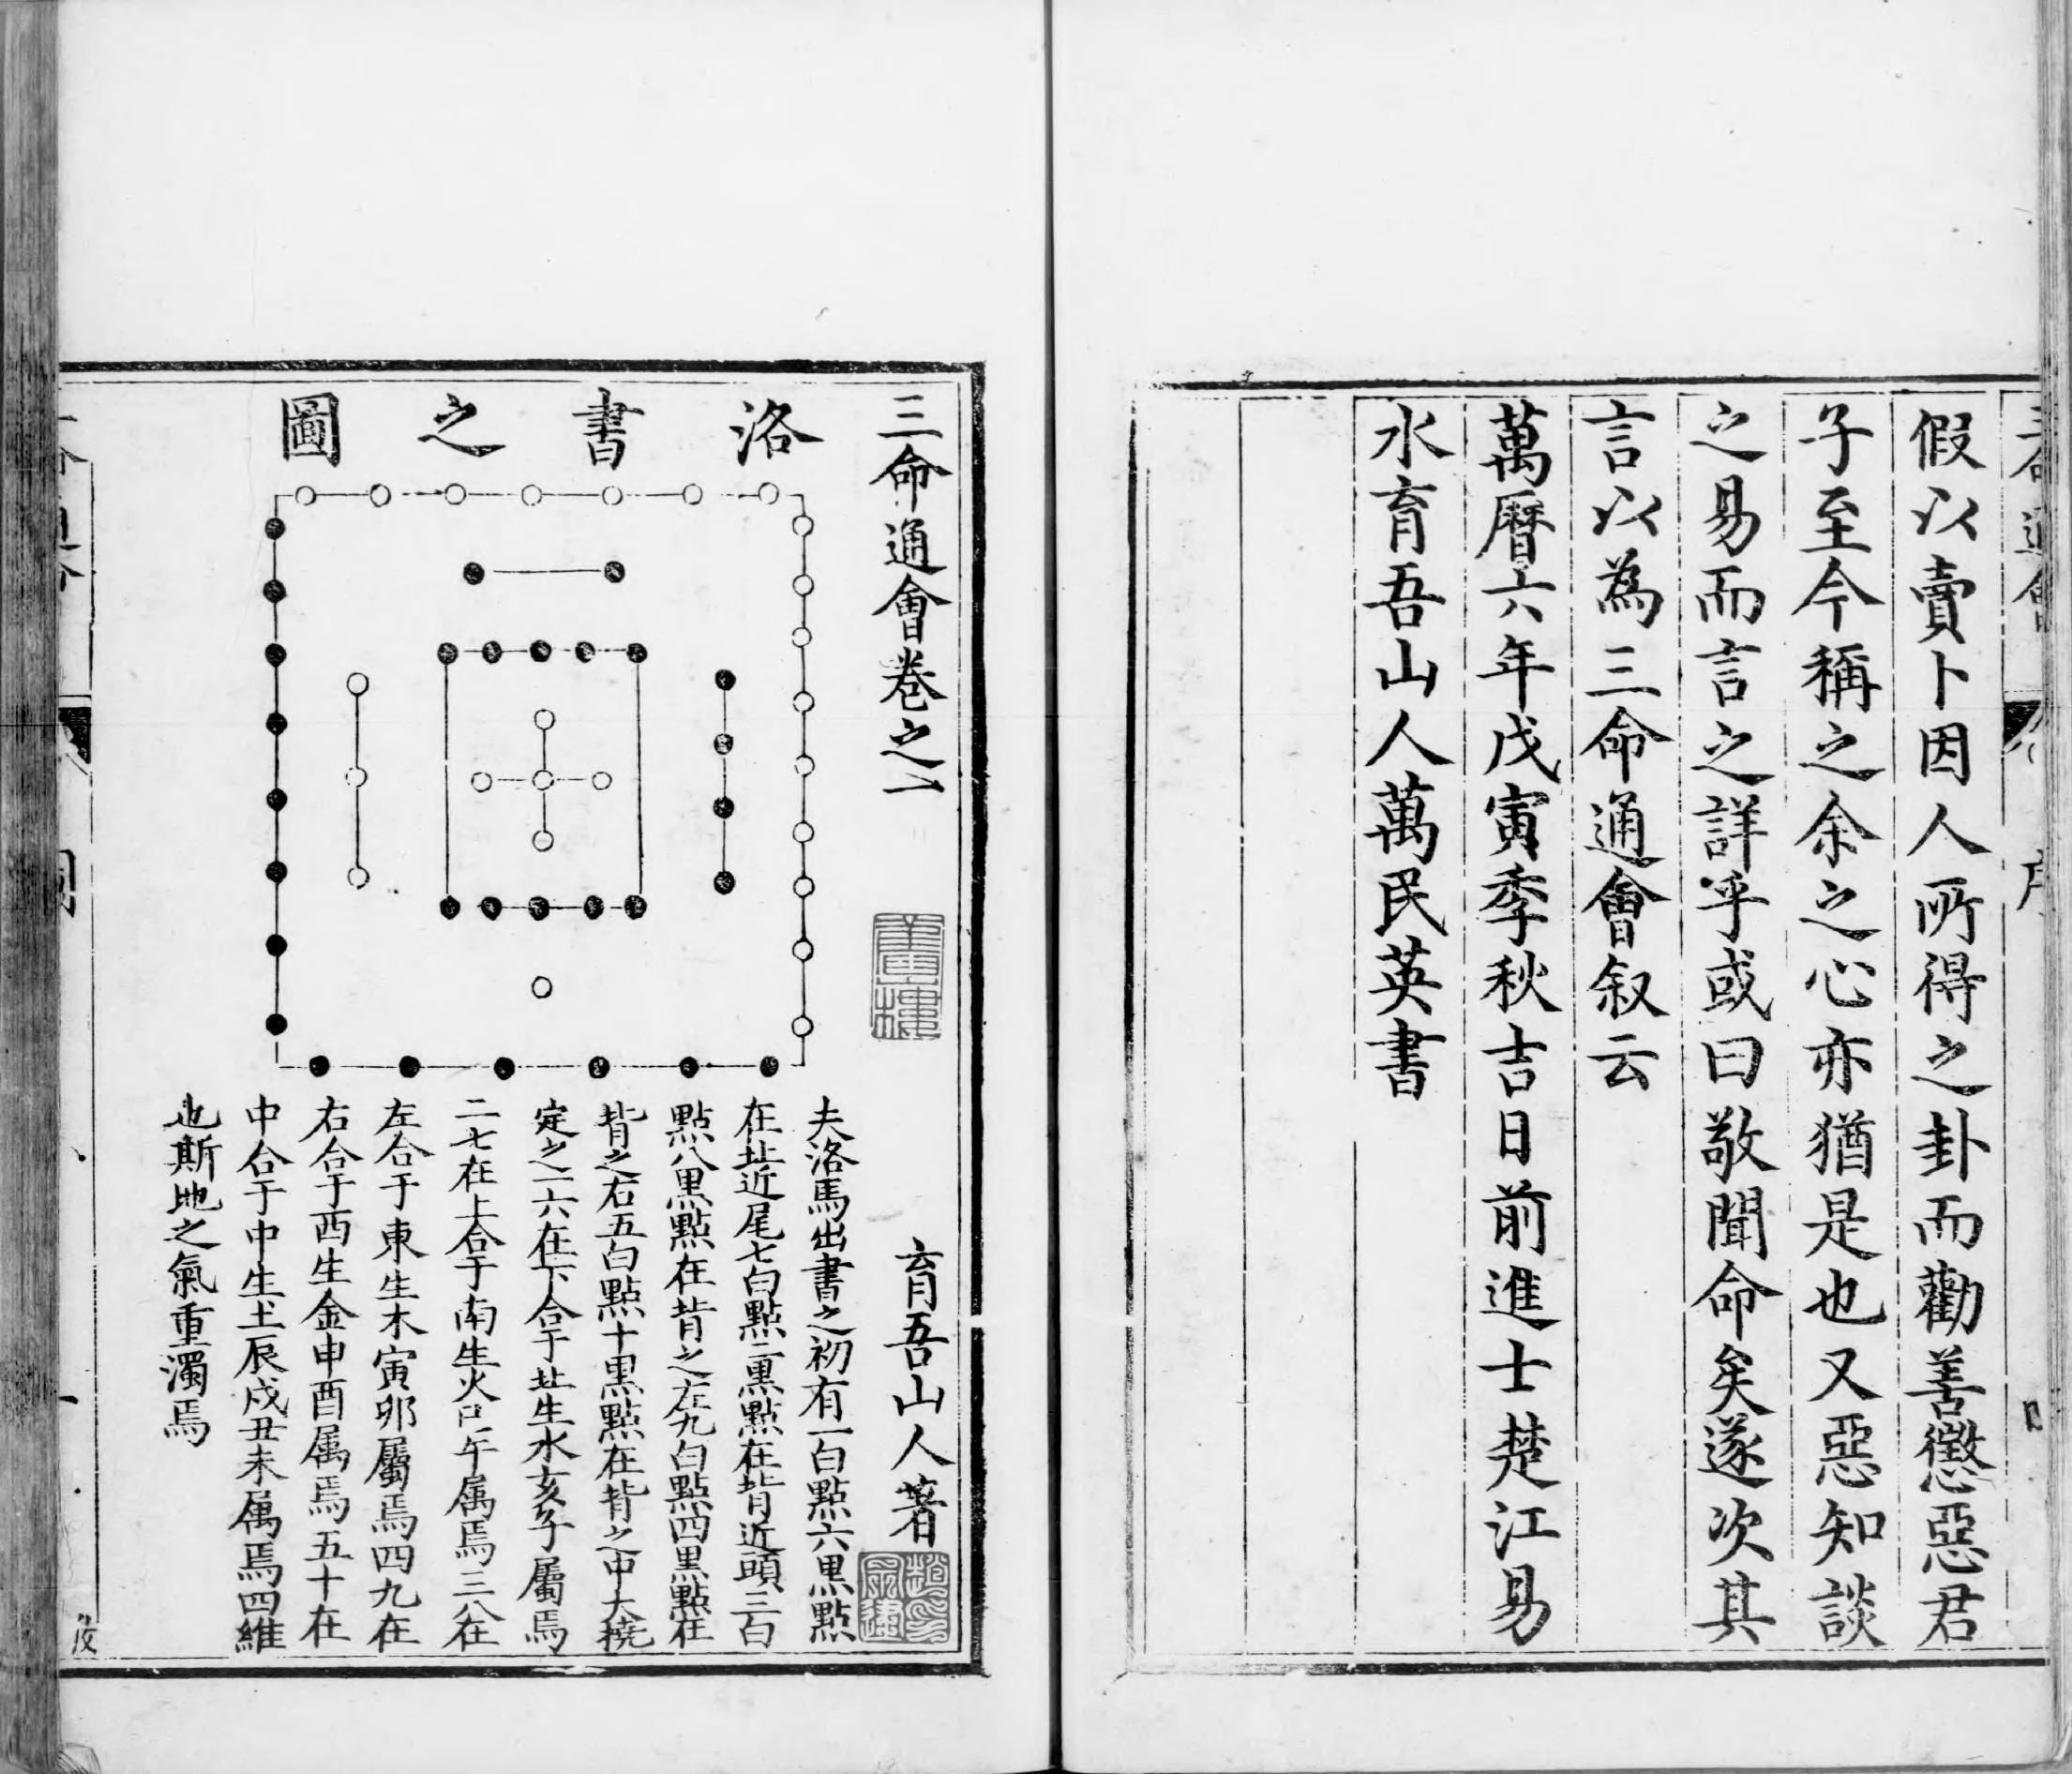 假以賣卜因人所得之卦而勸善懲惡君
子至今稱之余之心亦猶是也又惡知談
之易而言之詳乎或曰敬聞命矣遂次其
言以為三命通會叙云
萬曆六年戊寅季秋吉日前進士楚江易
水育吾山人萬民英書
三命通會卷之一
育吾山人著
洛書之圖
夫洛馬出書之初有一白點六黒點
在北近尾七白點二黒點在背近頭三白
點八黒點在背之左九白點四黒點在
背之右五白點十黒點在背之中大撓
定之一六在下合于北生水亥子屬焉
二七在上合于南生火巳午属焉三八在
左合于東生木寅卯屬焉四九在
右合于西生金申酉属焉五十在
中合于中生土辰戌丑未属焉四維
也斯地之氣重濁焉